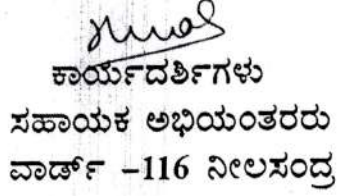 ಕಾರ್ಯದರ್ಶಿಗಳು
ಸಹಾಯಕ ಅಭಿಯಂತರರು
ವಾರ್ಡ್ -116 ನೀಲಸಂದ್ರ